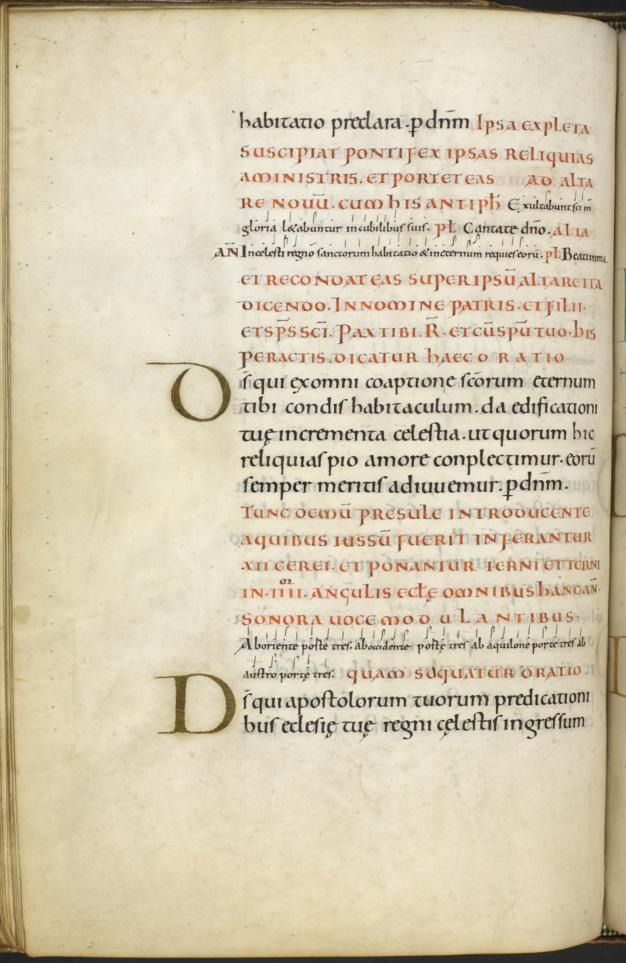 habitatio preclara. p dn̄m IPSA EXPLETA
SUSCIPIAT PONTIFEX IPSAS RELIQUIAS
AMINISTRIS. ET PORTET EAS AD ALTA
RE NOVŪ. CUM HIS ANTIPH̄ Exultabunt sc̄i in
gloria lętabuntur in cubilibus suis. PL̄ Cantate dn̄o. ALIA
AN̄ In celesti regno sanctorum habitatio & in eternum requies eorū. PL̄ Beati inma
ET RECONDAT EAS SUPER IPSŪ ALTARE ITA
DICENDO. IN NOMINE PATRIS. ET FILII.
ET SP̄S SC̄I. PAX TIBI. R̄. ET CŪ SPŪ TUO. HIS
PERACTIS. DICATUR HAEC ORATIO
Ds̄ qui ex omni coaptione sc̄orum eternum
tibi condis habitaculum. da edificationi
tuę incrementa celestia. ut quorum hic
reliquias pio amore conplectimur. eorū
semper meritis adiuuemur. p dn̄m.
TUNC DEMŪ PRESULE INTRODUCENTE
A QUIBUS IUSSŪ FUERIT INFERANTUR
XII CEREI. ET PONANTUR TERNI ET TERNI
IN. IIII OR. ANGULIS ECL̄E OMNIBUS HANC AN̄.
SONORA UOCE MODULANTIBUS.
Ab oriente portę tres. ab occidente portę tres ab aquilone portę tres ab
austro portę tres. QUAM SEQUATUR ORATIO
Ds̄ qui apostolorum tuorum predicationi
bus eclesię tuę regni cęlestis ingressum